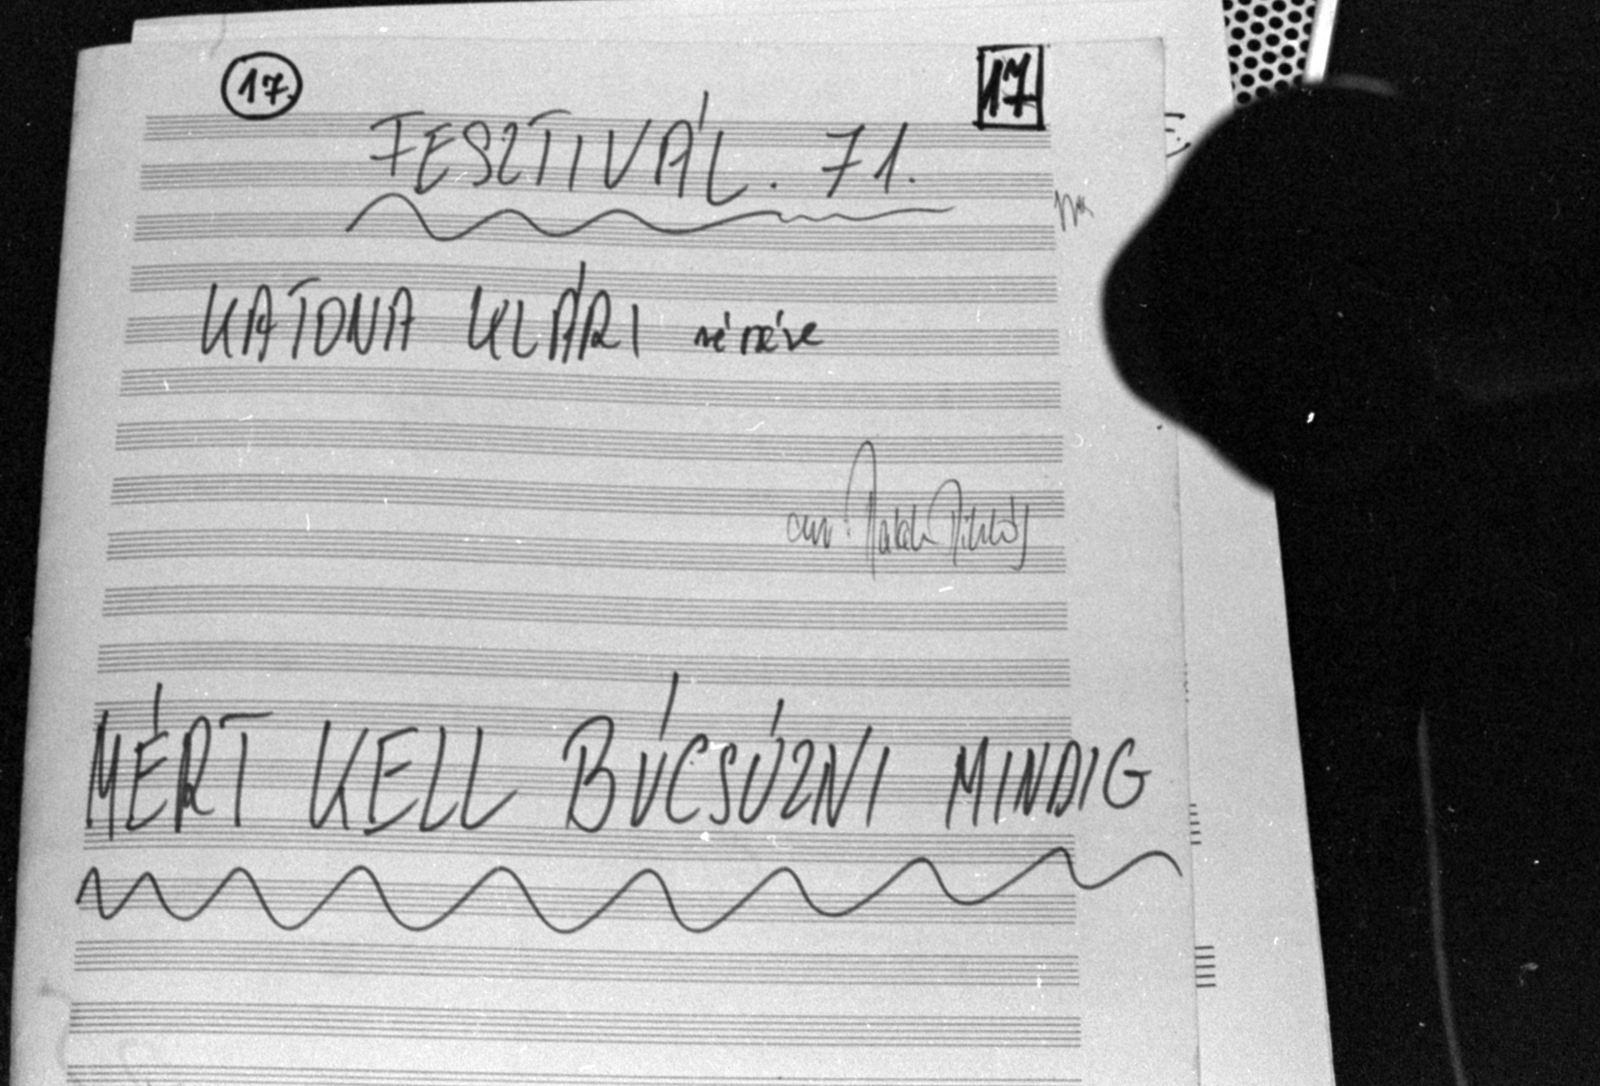 17.
17
FESZTIVÁL. 71.
KATONA KLÁRI részére
arr. Malek Miklós
MÉRT KELL BÚCSÚZNI MINDIG